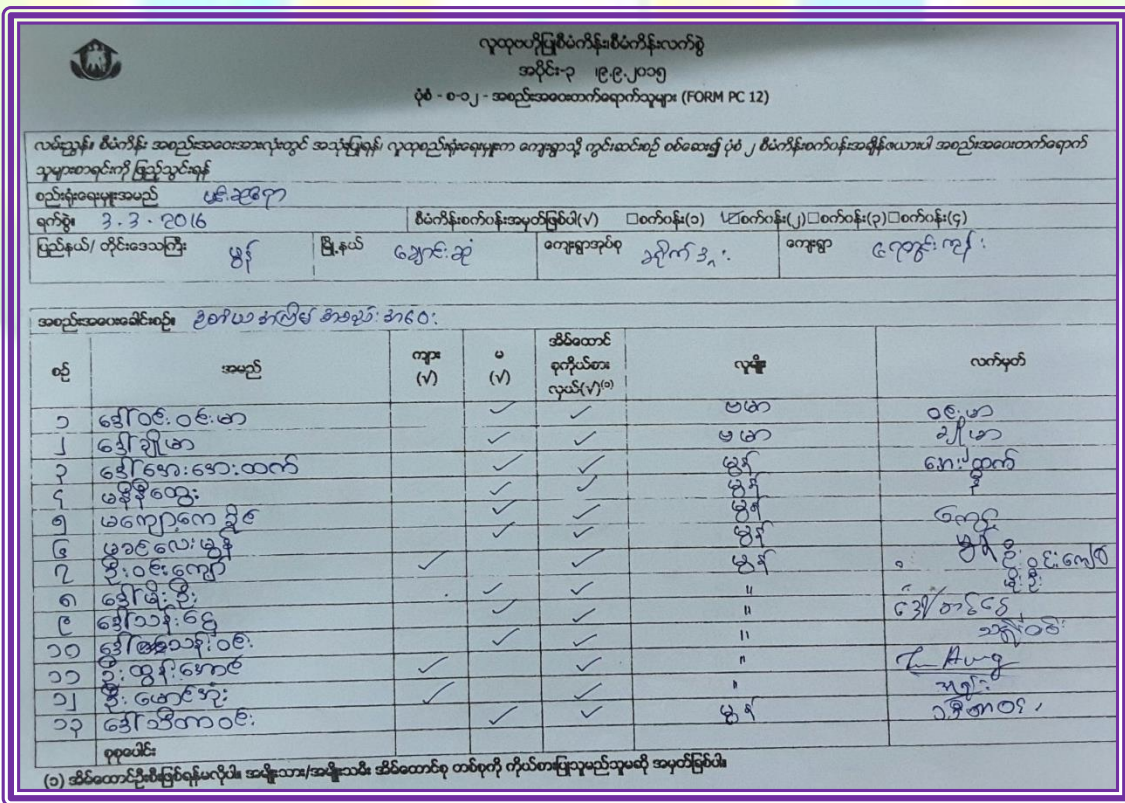 လူထုဗဟိုပြုစီမံကိန်းစီမံကိန်းလက်စွဲ
အပိုင်း-၃ ၊၉.၉.၂၀၁၅
ပုံစံ - စ-၁၂ - အစည်းအဝေးတက်ရောက်သူများ (FORM PC 12)
လမ်းညွှန်။ စီမံကိန်း အစည်းအဝေးအားလုံးတွင် အသုံးပြုရန်၊ လူထုစည်းရုံးရေးမှူးက ကျေးရွာသို့ ကွင်းဆင်းစဉ် စစ်ဆေး၍ ပုံစံ ၂ စီမံကိန်းစက်ပန်းအချိန်ဇယားပါ အစည်းအဝေးတက်ရောက်
သူများစာရင်းကို ဖြည့်သွင်းရန်
စည်းရုံးရေးမှူးအမည်
ရက်စွဲ။ 3.3.2016 စီမံကိန်းစက်ပန်းအမှတ်ဖြစ်ပါ(√) □စက်ပန်း(၁) ☑စက်ပန်း(၂)□စက်ပန်း(၃)□စက်ပန်း(၄)
ပြည်နယ်/ တိုင်းဒေသကြီး မွန် မြို့နယ် ချောင်းဆုံ ကျေးရွာအုပ်စု ကျေးရွာ
အစည်းအဝေးခေါင်းစဉ်။ ဒုတိယအကြိမ် အစည်းအဝေး
စဉ် အမည် ကျား (√) မ (√) အိမ်ထောင်စုကိုယ်စားလှယ်(√)⁽ᵒ⁾ လူမျိုး လက်မှတ်
၁ ဒေါ်ဝင်းဝင်းမာ ✓ ✓ ဗမာ ဝင်းမာ
၂ ဒေါ်ချိုမာ ✓ ✓ ဗမာ ချိုမာ
၃ ဒေါ်အေးအေးထက် ✓ ✓ မွန် အေးထက်
၄ မနီနီထွေး ✓ ✓ မွန် နီ
၅ ✓ ✓ မွန်
၆ ✓ ✓ မွန် မွန်
၇ ဦးဝင်းကျော် ✓ ✓ မွန် ဦးဝင်းကျော်
၈ ဒေါ်မိုးဦး ✓ ✓ " မိုးဦး
၉ ဒေါ်သန်းငွေ ✓ ✓ "
၁၀ ဒေါ်သန်းဝင်း ✓ ✓ "
၁၁ ဦးထွန်းအောင် ✓ ✓ "
၁၂ ဦးမောင်အုံး ✓ ✓ "
၁၃ ဒေါ်သီတာဝင်း ✓ ✓ မွန် သီတာဝင်း
စုစုပေါင်း
(၁) အိမ်ထောင်ဦးစီးဖြစ်ရန်မလိုပါ။ အမျိုးသား/အမျိုးသမီး အိမ်ထောင်စု တစ်စုကို ကိုယ်စားပြုသူမည်သူမဆို အမှတ်ခြစ်ပါ။